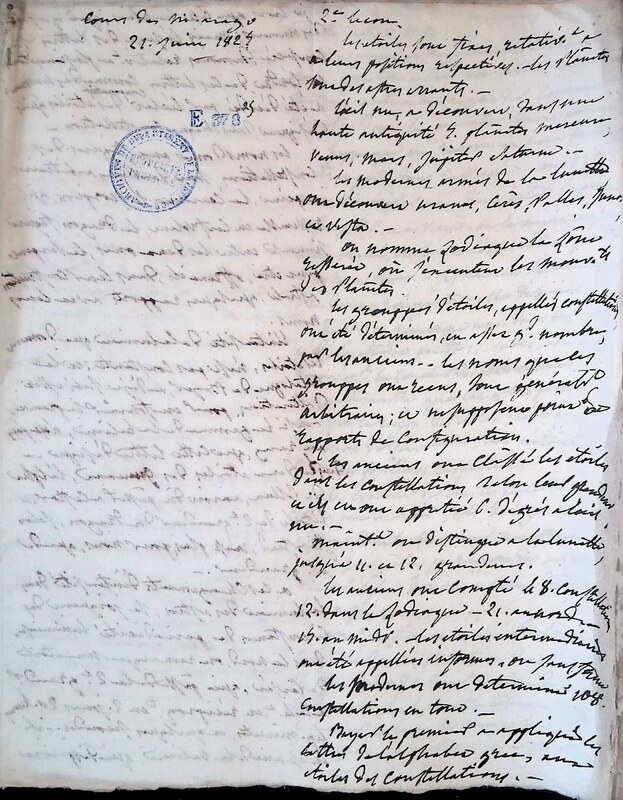 Cours de Mr arago
21. juin 1825
E 378 25
ARCHIVES DU DEPARTEMENT DE
2e lecon.
les étoiles sont fixes, relativt a
a leurs positions respectives. - les planetes
sont des astres errants. -
L'œil nu, a découvert, dans une
haute antiquité 5. planetes mercure,
venus, mars, jupiter et saturne. -
les modernes armés de la lunette
ont découvert uranus, Cérès, Pallas, Junon
et vesta. -
on nomme zodiaque la zône
resserrée, où s'executent les mouvts
des planetes.
les grouppes d'étoiles, appellés constellations
ont été déterminés, en assez gd nombre,
par les anciens. - les noms que ces
grouppes ont reçus, sont généralt
arbitraires; ce ne supposent point de
rapports de configuration.
les anciens ont classé les étoiles
dans les constellations selon leur grandeur
et ils en ont apprécié 6. dégrés a l'œil
nu. -
maintt on distingue a la lunette,
jusqu'à 11. et 12. grandeurs.
les anciens ont compté 48. constellations
12. dans le zodiaque - 21. au nord -
15. au midi. - les étoiles intermediaires
ont été appellées informes, ou sans forme
les modernes ont determiné 108.
constellations en tout. -
Bayer le premier a appliqué les
lettres de l'alphabet grec, aux
étoiles des constellations. -